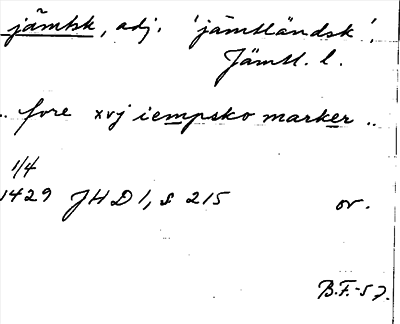 jämtsk, adj. 'jämtländsk'.
Jämtl. l.
.. fore xvj iempsko marker ..
1/4
1429 JHD 1, s 215 or.
B.F.-57.